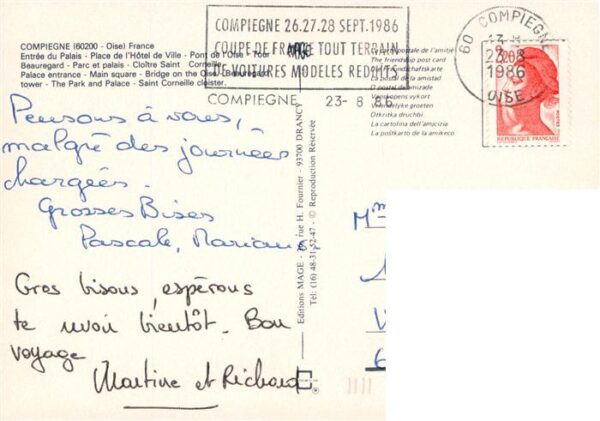 COMPIEGNE (60200 - Oise) France
Entrée du Palais - Place de l'Hôtel de Ville - Pont de l'Oise - Tour
Beauregard - Parc et palais - Cloître Saint Corneille
Palace entrance - Main square - Bridge on the Oise - Beauregard
tower - The Park and Palace - Saint Corneille cloister.
COMPIEGNE 26.27.28 SEPT.1986
COUPE DE FRANCE TOUT TERRAIN
VOITURES MODELES REDUITS
COMPIEGNE 23-8 86
postale de l'amitié
The friendship post card
de la amistad
O postal de amizade
Vriendskaps vykort
groeten
Otkritka druchbi
La cartolina dell'amicizia
La postkarto de la amikeco
60 COMPIEGNE
23-8
1986
OISE
2,20
REPUBLIQUE FRANÇAISE
Pensons à vous,
malgré des journées
chargées.
Grosses Bises
Pascale,
Gros bisous, espérons
te revoir bientôt. Bon
voyage
Martine et Richard
Editions MAGE - rue H. Fournier - 93700 DRANCY
Tél: (16) 48-31-52-47 - © Reproduction Réservée
Mme